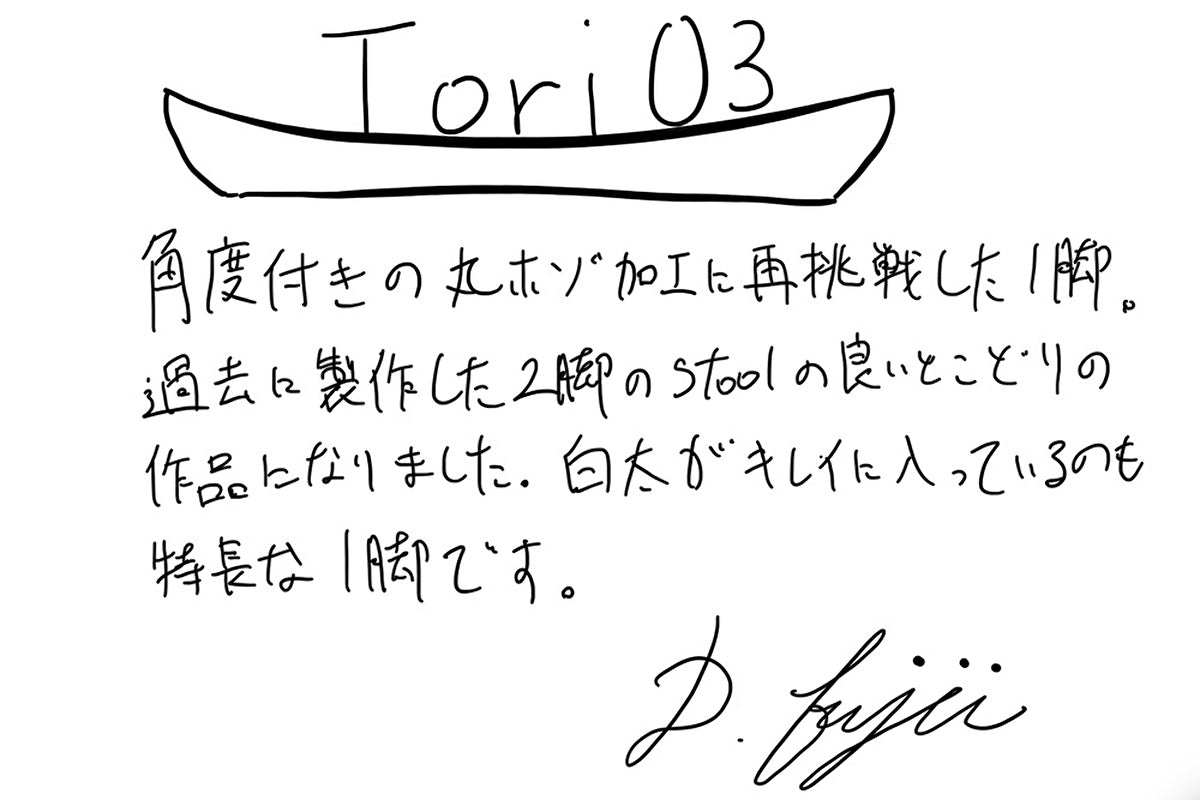 Tori 03
角度付きの丸ホゾ加工に再挑戦した1脚。
過去に製作した2脚のstoolの良いとこどりの
作品になりました。白太がキレイに入っているのも
特長な1脚です。
D. Fujii